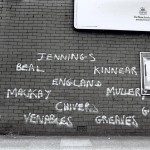 JENNINGS
BEAL KINNEAR
ENGLAND
MACKAY MULLERY
CHIVERS
VENABLES GREAVES